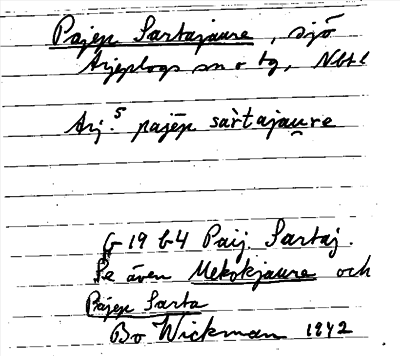 Pajēp Sartajaure, sjö
Arjeplogs sn o tg, Nbtl
Arj.⁵ pajēp sàrtajau̯re
G 19 b4 Paij. Sartaj.
Se även Mekokjaure och
Pajep Sarta
Bo Wickman 1942